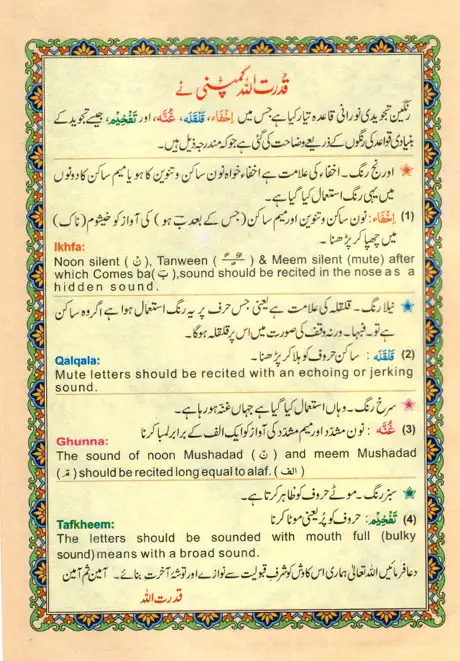 قُدرت اللہ کمپنی نے
رنگین تجویدی نورانی قاعدہ تیار کیا ہے جس میں اِخْفَاء، قَلْقَلَه، غُنَّه، اور تَفْخِیْم، جیسے تجوید کے
بنیادی قواعد کی رنگوں کے ذریعے وضاحت کی گئی ہے جو کہ مندرجہ ذیل ہیں۔
اورنج رنگ۔ اخفاء کی علامت ہے اخفاء خواہ نون ساکن و تنوین کا ہو یا میم ساکن کا دونوں
میں یہی رنگ استعمال کیا گیا ہے۔
(1) اِخْفَاء: نون ساکن و تنوین اور میم ساکن (جس کے بعد ب ہو) کی آواز کو خیشوم (ناک)
میں چھپا کر پڑھنا۔
Ikhfa:
Noon silent ( نْ ), Tanween ( ـًـٍـٌ ) & Meem silent (mute) after
which Comes ba( بَ ),sound should be recited in the nose as a
hidden sound.
نیلا رنگ۔ قلقلہ کی علامت ہے یعنی جس حرف پر یہ رنگ استعمال ہوا ہے اگر وہ ساکن
ہے تو۔ فبہا۔ ورنہ وقف کی صورت میں اس پر قلقلہ ہوگا۔
(2) قَلْقَلَه : ساکن حروف کو ہلا کر پڑھنا۔
Qalqala:
Mute letters should be recited with an echoing or jerking
sound.
سرخ رنگ۔ وہاں استعمال کیا گیا ہے جہاں غنہ ہو رہا ہے۔
(3) غُنَّه : نون مشدّد اور میم مشدّد کی آواز کو ایک الف کے برابر لمبا کرنا
Ghunna:
The sound of noon Mushadad ( نّ ) and meem Mushadad
( مّ ) should be recited long equal to alaf. ( الف )
سبز رنگ۔ موٹے حروف کو ظاہر کرتا ہے۔
(4) تَفْخِیْم: حروف کو پُر یعنی موٹا کرنا
Tafkheem:
The letters should be sounded with mouth full (bulky
sound) means with a broad sound.
دعا فرمائیں اللہ تعالیٰ ہماری اس کاوش کو شرفِ قبولیت سے نوازے اور توشۂ آخرت بنائے۔ آمین ثم آمین
قدرت اللہ